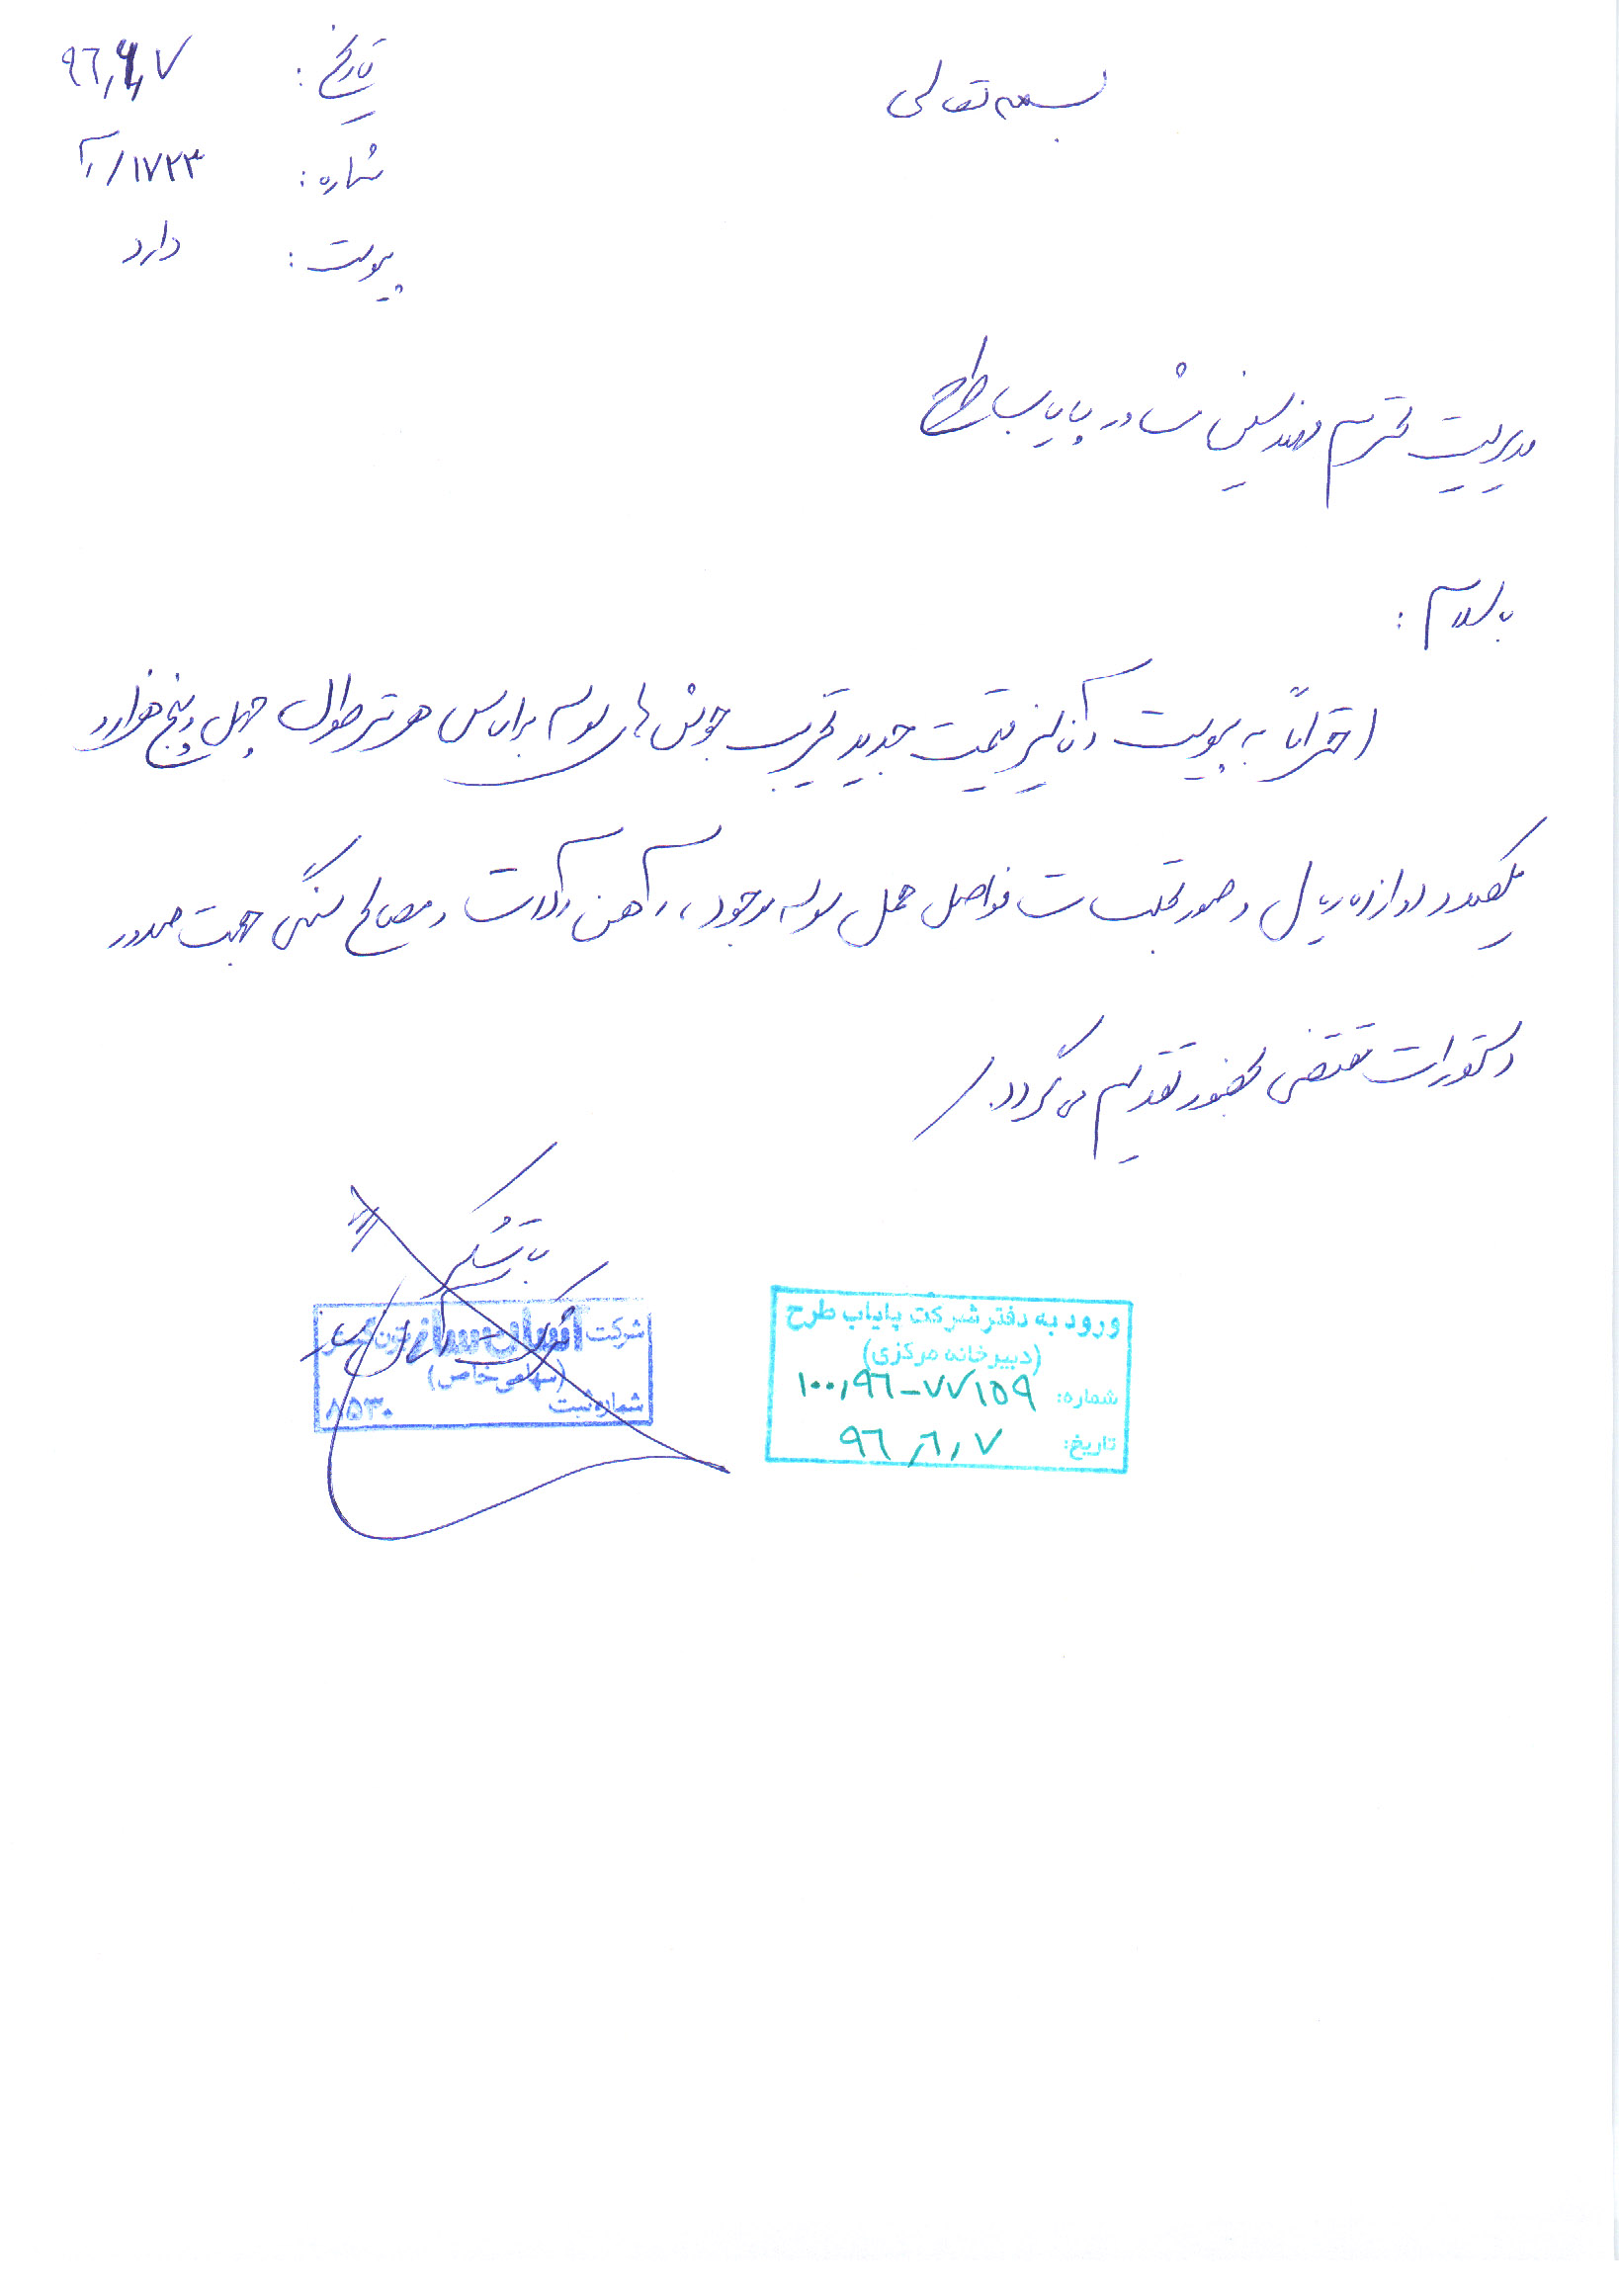 بسمه تعالی
تاریخ: ۹۶/۶/۷
شماره: ۱۷۲۳/آ
پیوست: دارد
مدیریت محترم مهندسین مشاور پایاب طرح
باسلام:
احتراماً به پیوست آنالیز قیمت جدید تخریب جوش های لوله براساس هر متر طول چهل و پنج هزار و
یکصد و دوازده ریال و صورتجلسات فواصل حمل لوله موجود، آهن آلات و مصالح سنگی جهت صدور
دستورات مقتضی بحضور تقدیم می گردد./
باتشکر
شرکت آسان ساز
(سهامی خاص)
شماره ثبت ۸۵۳۰
ورود به دفتر شرکت پایاب طرح
(دبیرخانه مرکزی)
شماره: ۱۰۰/۹۶-۷۷۱۵۹
تاریخ: ۹۶/۶/۷